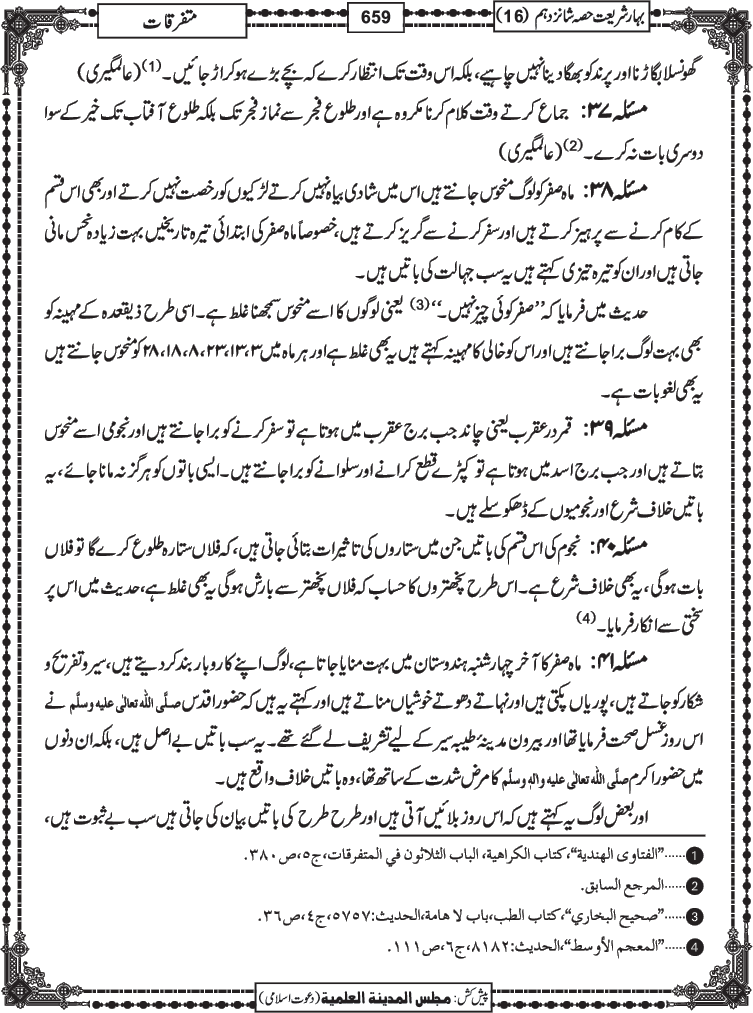 بہارِ شریعت حصہ شانزدہم (16)
659
متفرقات
گھونسلا بگاڑنا اور پرند کو بھگا دینا نہیں چاہیے، بلکہ اس وقت تک انتظار کرے کہ بچے بڑے ہوکر اڑ جائیں۔(1) (عالمگیری)
مسئلہ ۳۷: جماع کرتے وقت کلام کرنا مکروہ ہے اور طلوع فجر سے نماز فجر تک بلکہ طلوع آفتاب تک خیر کے سوا
دوسری بات نہ کرے۔(2) (عالمگیری)
مسئلہ ۳۸: ماہ صفر کو لوگ منحوس جانتے ہیں اس میں شادی بیاہ نہیں کرتے لڑکیوں کو رخصت نہیں کرتے اور بھی اس قسم
کے کام کرنے سے پرہیز کرتے ہیں اور سفر کرنے سے گریز کرتے ہیں، خصوصاً ماہ صفر کی ابتدائی تیرہ تاریخیں بہت زیادہ نحس مانی
جاتی ہیں اور ان کو تیرہ تیزی کہتے ہیں یہ سب جہالت کی باتیں ہیں۔
حدیث میں فرمایا کہ ”صفر کوئی چیز نہیں۔“(3) یعنی لوگوں کا اسے منحوس سمجھنا غلط ہے۔ اسی طرح ذیقعدہ کے مہینہ کو
بھی بہت لوگ برا جانتے ہیں اور اس کو خالی کا مہینہ کہتے ہیں یہ بھی غلط ہے اور ہر ماہ میں ۳، ۱۳، ۲۳، ۸، ۱۸، ۲۸ کو منحوس جانتے ہیں
یہ بھی لغو بات ہے۔
مسئلہ ۳۹: قمر در عقرب یعنی چاند جب برج عقرب میں ہوتا ہے تو سفر کرنے کو برا جانتے ہیں اور نجومی اسے منحوس
بتاتے ہیں اور جب برج اسد میں ہوتا ہے تو کپڑے قطع کرانے اور سلوانے کو برا جانتے ہیں۔ ایسی باتوں کو ہرگز نہ مانا جائے، یہ
باتیں خلاف شرع اور نجومیوں کے ڈھکوسلے ہیں۔
مسئلہ ۴۰: نجوم کی اس قسم کی باتیں جن میں ستاروں کی تاثیرات بتائی جاتی ہیں، کہ فلاں ستارہ طلوع کرے گا تو فلاں
بات ہوگی، یہ بھی خلاف شرع ہے۔ اس طرح نچھتروں کا حساب کہ فلاں نچھتر سے بارش ہوگی یہ بھی غلط ہے، حدیث میں اس پر
سختی سے انکار فرمایا۔(4)
مسئلہ ۴۱: ماہ صفر کا آخر چہار شنبہ ہندوستان میں بہت منایا جاتا ہے، لوگ اپنے کاروبار بند کردیتے ہیں، سیر و تفریح و
شکار کو جاتے ہیں، پوریاں پکتی ہیں اور نہاتے دھوتے خوشیاں مناتے ہیں اور کہتے یہ ہیں کہ حضور اقدس صلَّی اللہ تعالٰی علیہ وسلَّم نے
اس روز غسل صحت فرمایا تھا اور بیرون مدینہ طیبہ سیر کے لیے تشریف لے گئے تھے۔ یہ سب باتیں بے اصل ہیں، بلکہ ان دنوں
میں حضور اکرم صلَّی اللہ تعالٰی علیہ واٰلہٖ وسلَّم کا مرض شدت کے ساتھ تھا، وہ باتیں خلاف واقع ہیں۔
اور بعض لوگ یہ کہتے ہیں کہ اس روز بلائیں آتی ہیں اور طرح طرح کی باتیں بیان کی جاتی ہیں سب بے ثبوت ہیں،
1 ......”الفتاوی الھندیۃ“، کتاب الکراھیۃ، الباب الثلاثون في المتفرقات، ج٥، ص٣٨٠.
2 ......المرجع السابق.
3 ......”صحیح البخاري“، کتاب الطب، باب لا ھامۃ، الحدیث: ٥٧٥٧، ج٤، ص٣٦.
4 ......”المعجم الأوسط“، الحدیث: ٨١٨٢، ج٦، ص١١١.
پیش کش: مجلس المدینۃ العلمیۃ (دعوت اسلامی)